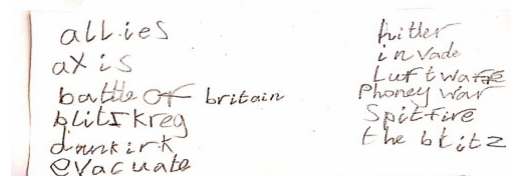 allies
axis
battle of britain
blitskreg
dunkirk
evacuate
hitler
invade
Luftwaffe
Phoney war
Spitfire
the blitz